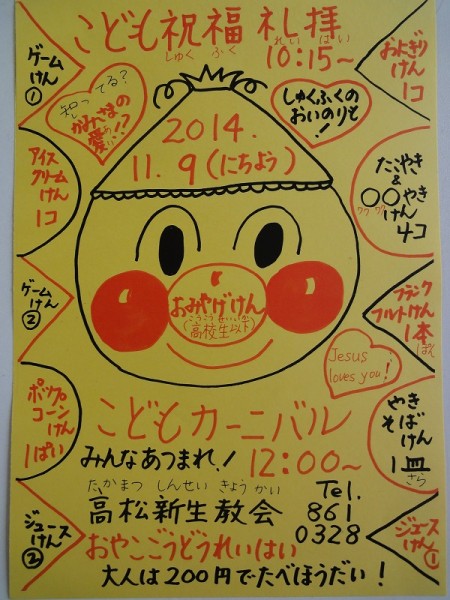 こども祝福礼拝
しゅく ふく れい はい
10:15〜
ゲーム
けん
①
知ってる?
し
かみさまの
愛!?
あい
しゅくふくの
おいのりも
!
おにぎり
けん
1コ
2014.
11.9(にちよう)
アイス
クリーム
けん
1コ
たこやき
&
○○やき
ワクワク
けん
4コ
ゲーム
けん
②
おみやげけん
こうこうせいいか
(高校生以下)
フランク
フルトけん
1本
ぽん
Jesus
loves you!
ポップ
コーン
けん
1ぱい
こどもカーニバル
みんなあつまれ!
12:00〜
やき
そば
けん
1皿
さら
たかまつ しんせい きょうかい
高松新生教会
Tel.
861
0328
ジュース
けん
②
おやこごうどうれいはい
ジュース
けん①
大人は200円でたべほうだい!